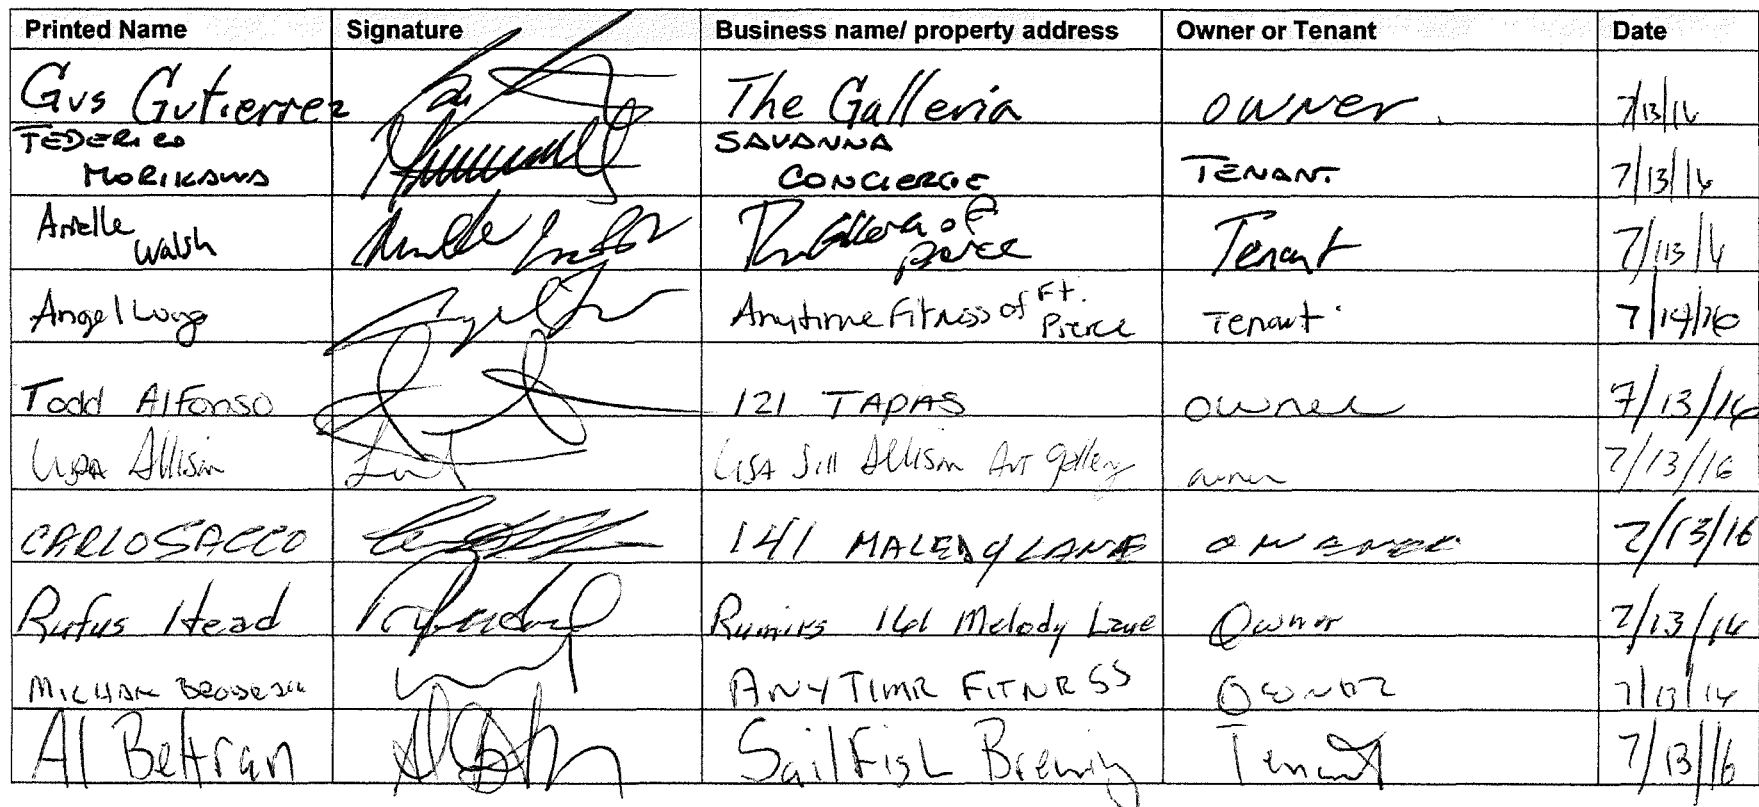 Printed Name Signature Business name/ property address Owner or Tenant Date
Gus Gutierrez The Galleria owner 7/13/16
FEDERICO MORIKAWA SAVANNA CONCIERGE TENANT 7/13/16
Arielle Walsh Galleria of Pierce Tenant 7/13/16
Angel Lugo Anytime Fitness of Ft. Pierce Tenant 7/14/16
Todd Alfonso 121 TAPAS owner 7/13/16
Lisa Allison LISA Jill Allison Art Gallery owner 7/13/16
CARLO SACCO 141 LANE 7/13/16
Rufus Head 161 Melody Lane Owner 7/13/16
ANYTIME FITNESS OWNER 7/13/16
Al Beltran SailFish Brewing Tenant 7/13/16